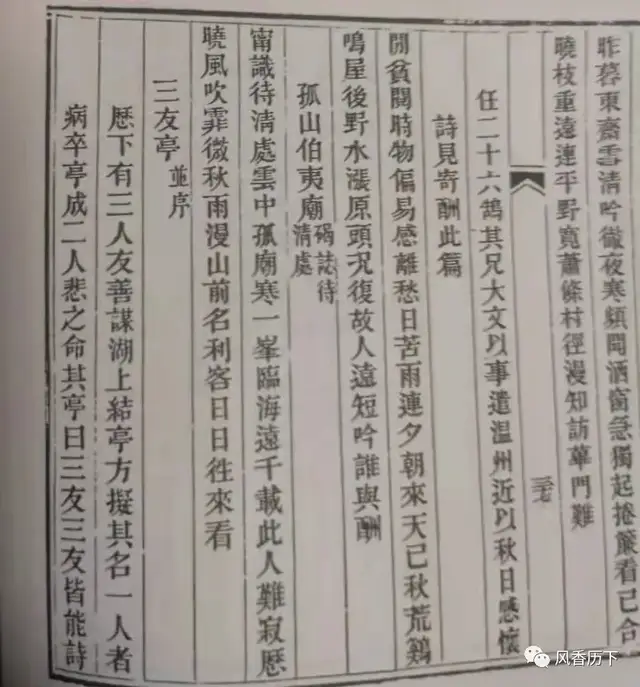 昨暮東齋雪清吟徹夜寒頻聞洒窗急獨起捲簾看已合
曉枝重遠連平野寬蕭條村徑漫知訪蓽門難
三七
任二十六鵠其兄大文以事遣温州近以秋日感懷
詩見寄酬此篇
閒貧閱時物偏易感離愁日苦雨連夕朝來天已秋荒鷄
鳴屋後野水漲原頭况復故人遠短吟誰與酬
孤山伯夷廟碣誌待清處
甯識待清處雲中孤廟寒一峯臨海遠千載此人難寂歷
曉風吹霏微秋雨漫山前名利客日日徃來看
三友亭並序
歷下有三人友善謀湖上結亭方擬其名一人者
病卒亭成二人悲之命其亭曰三友三友皆能詩
风香历下